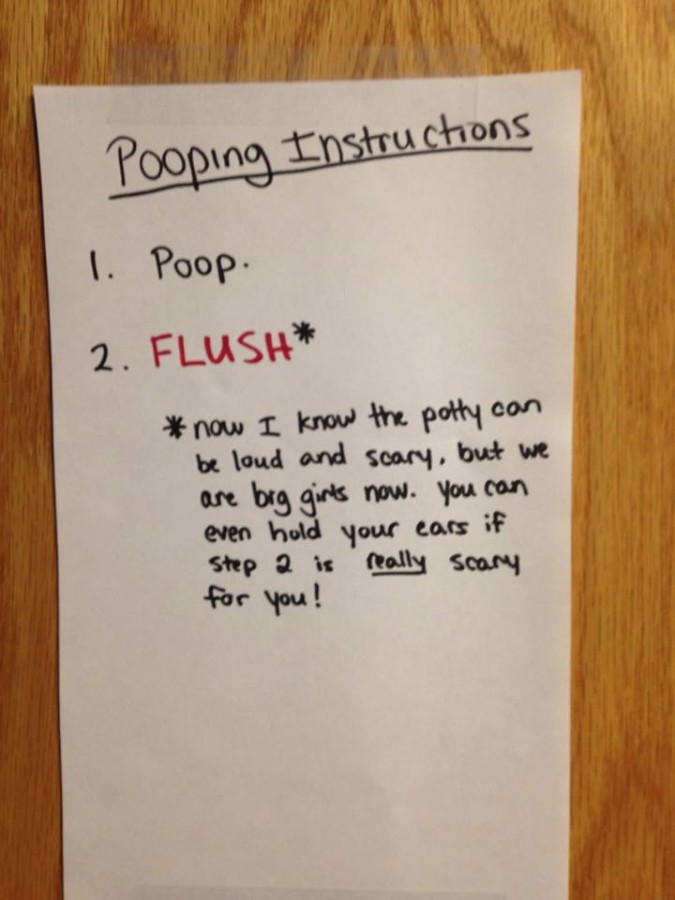 Pooping Instructions
1. Poop.
2. FLUSH*
*now I know the potty can
be loud and scary, but we
are big girls now. you can
even hold your ears if
step 2 is really scary
for you!